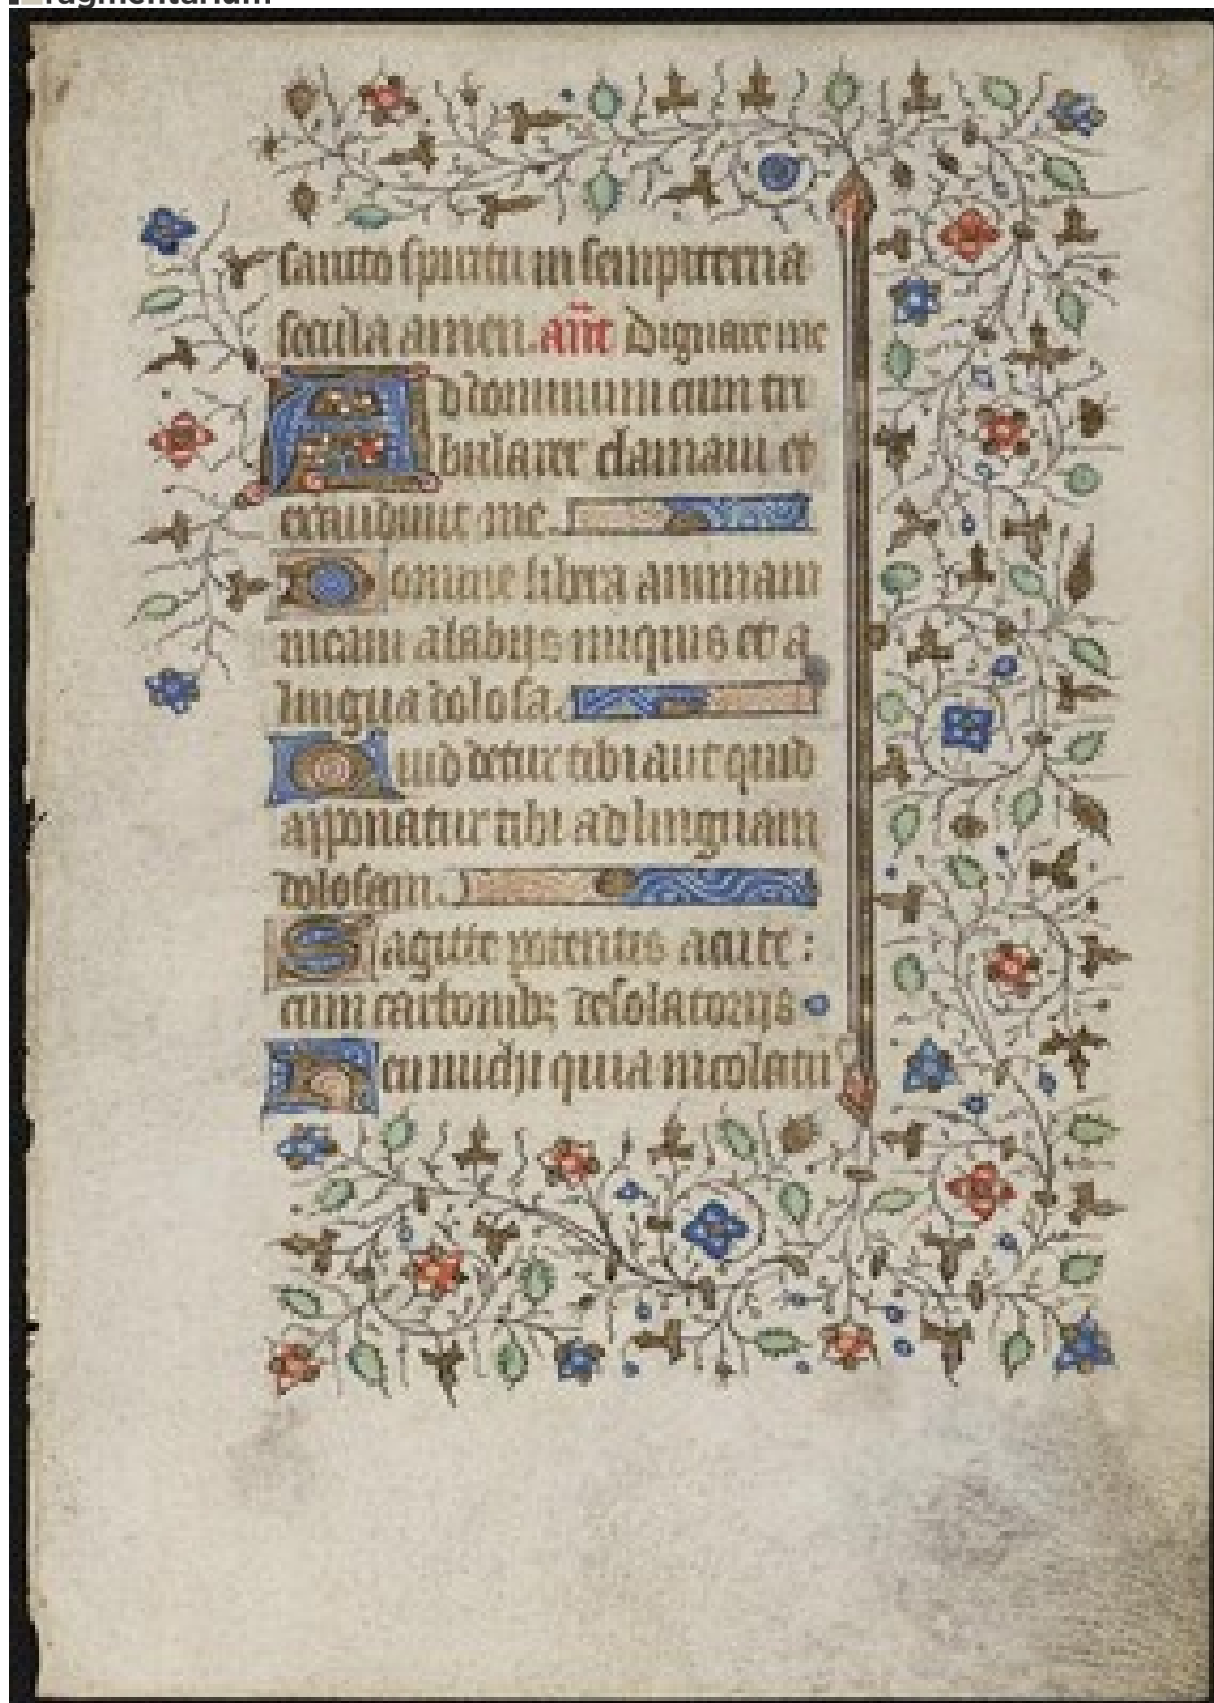 fragmentarium
sancto spiritu in sempiterna
secula amen. añt Dignare me
Ad dominum cum tri
bularer clamaui et
exaudiuit me.
Domine libera animam
meam a labijs iniquis et a
lingua dolosa.
Quid detur tibi aut quid
apponatur tibi ad linguam
dolosam.
Sagitte potentis acute :
cum carbonibꝫ desolatorijs
Heu michi quia incolatu